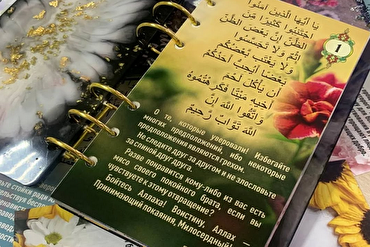 يا أيها الذين آمنوا
اجتنبوا كثيرا من
الظن إن بعض الظن
إثم ولا تجسسوا
ولا يغتب بعضكم
بعضا أيحب أحدكم
أن يأكل لحم
أخيه ميتا فكرهتموه
واتقوا الله إن
الله تواب رحيم
1
О те, которые уверовали! Избегайте
многих предположений, ибо некоторые
предположения являются грехом.
Не следите друг за другом и не злословьте
за спиной друг друга.
Разве понравится кому-либо из вас есть
мясо своего покойного брата, если вы
чувствуете к этому отвращение?
Бойтесь Аллаха! Воистину, Аллах —
Принимающий покаяния, Милосердный!